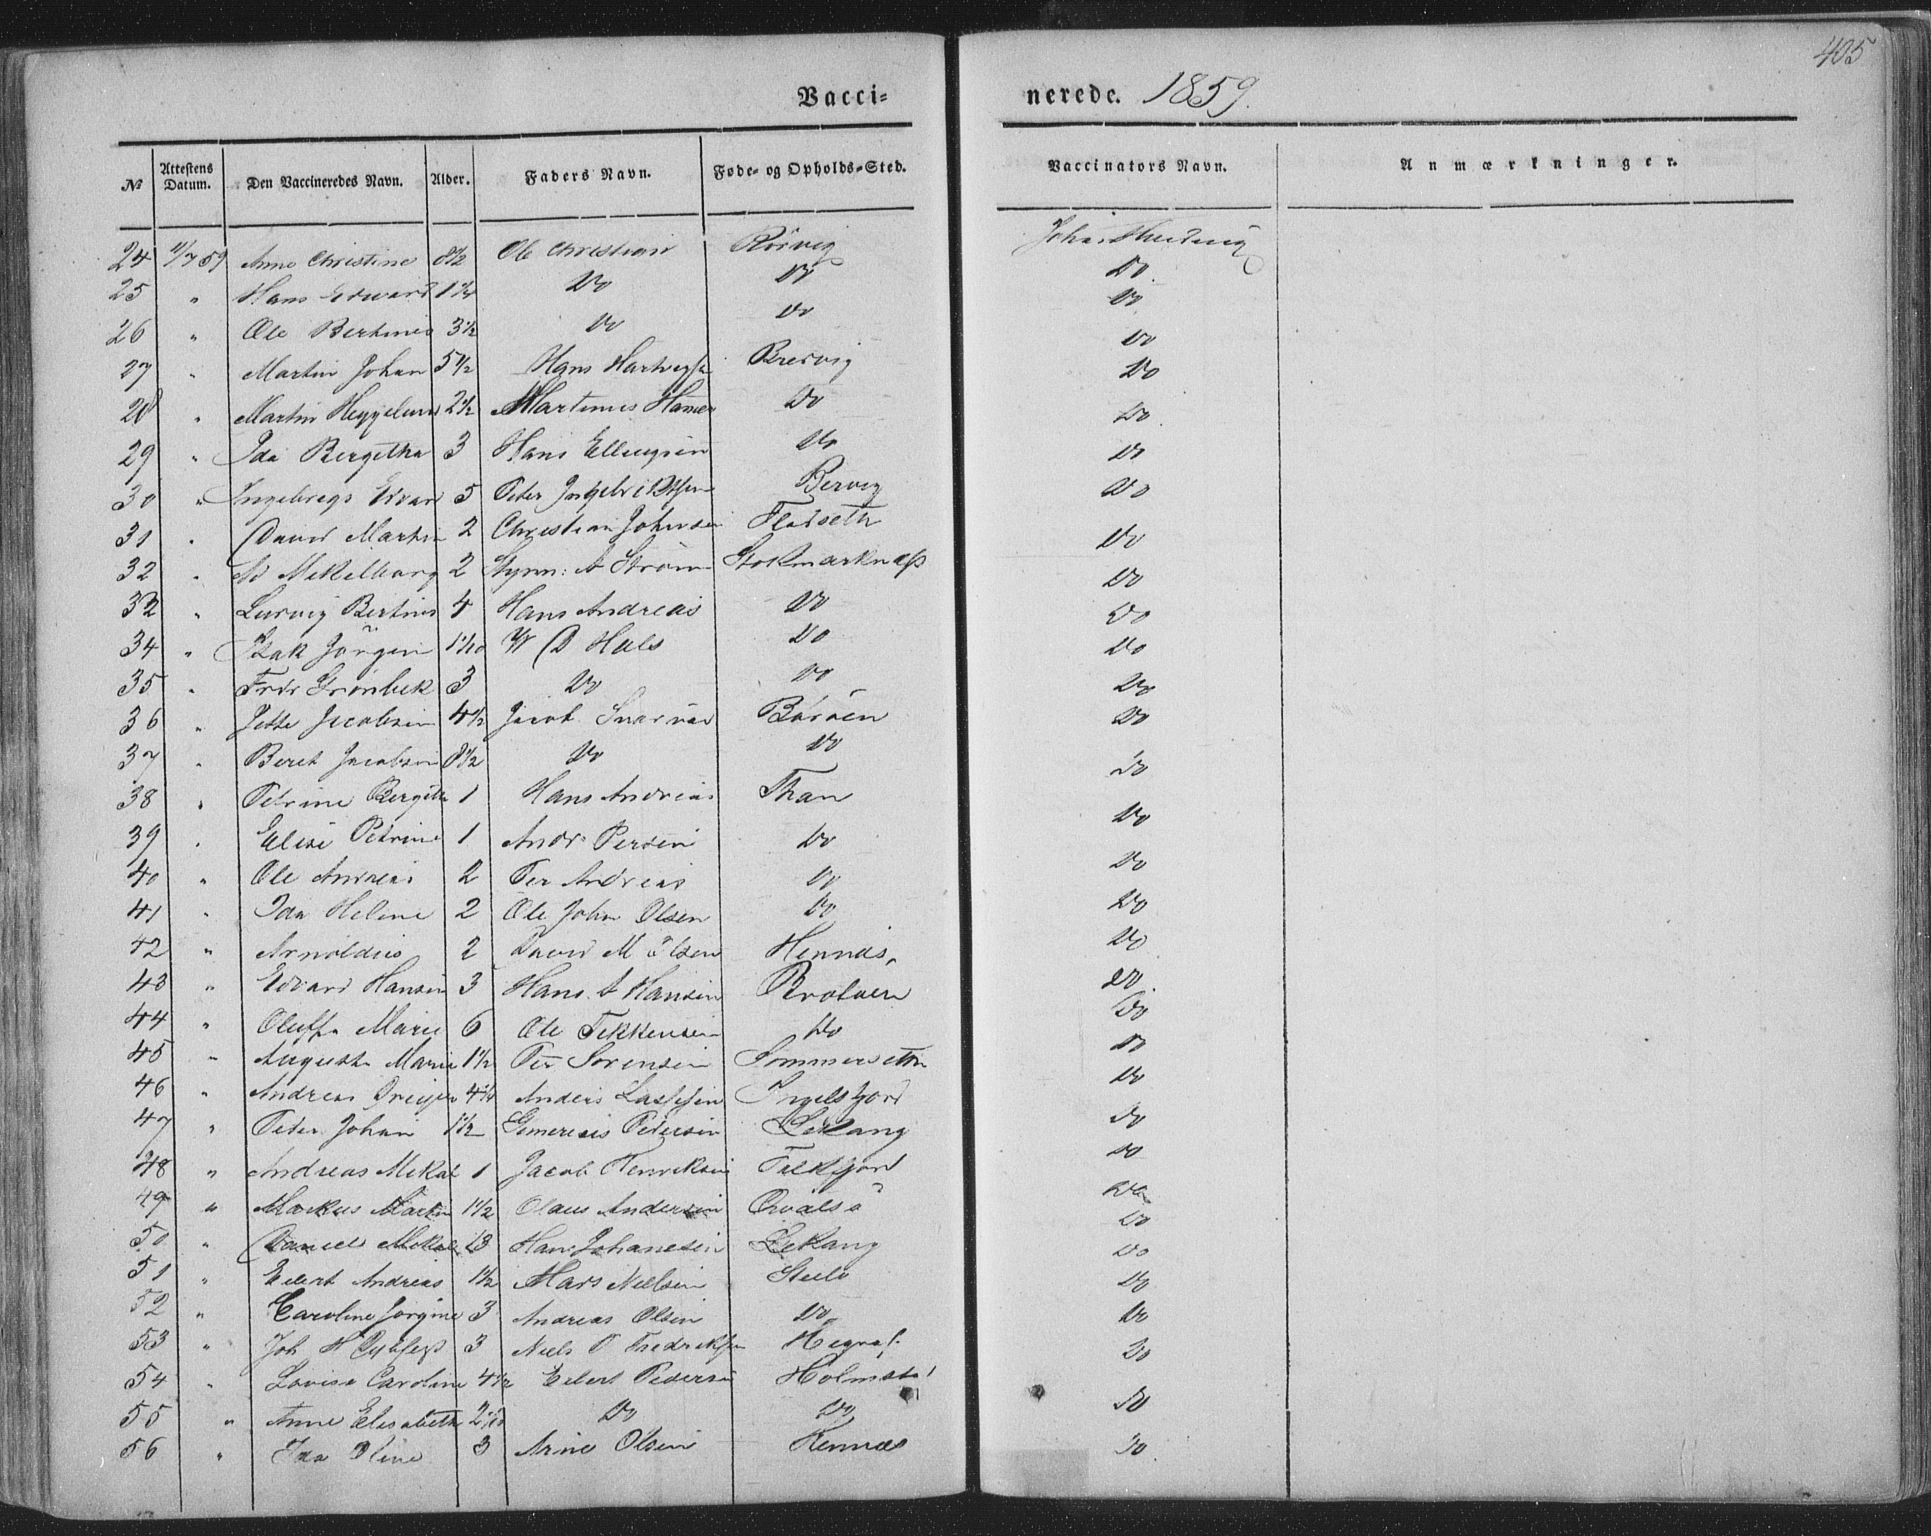 405
Vacci-
nerede. 1859.
No Attestens Datum. Den Vaccineredes Navn. Alder. Faders Navn. Føde- og Opholds-Sted. Vaccinators Navn. Anmærkninger.
24 11/7 59 Anne Christine 8 1/2 Ole Christian Rörvig Johan
25 " Hans Edvard 1 1/4 Do Do Do
26 " Ole Bertines 3 1/2 Do Do Do
27 " Martin Johan 5 1/2 Hans Hartvigs Bredvig Do
28 " Martin Heggelund 2 1/2 Martinus Hansen Do Do
29 " Ida Bergitha 3 Hans Ellingsen Do Do
30 " Ingebregt Edvard 5 Peter Ingebrigtsen Bervig Do
31 " David Martin 2 Christian Johnsen Fladseth Do
32 " Mekelborg 2 A Ström Stokmarknæs Do
33 " Ludvig Bertins 4 Hans Andreas Do Do
34 " Isak Jörgen 1 1/10 W D Hals Do Do
35 " Fredr Grönbek 3 Do Do Do
36 " Jette Jacobsen 4 1/2 Jacob Börøen Do
37 " Beret Jacobsen 8 1/2 Do Do Do
38 " Petrine Bergitta 1 Hans Andreas Than Do
39 " Elise Petrine 1 Andr. Persen Do Do
40 " Ole Andreas 2 Per Andreas Do Do
41 " Ida Heline 2 Ole Johan Olsen Do Do
42 " Arnoldus 2 David M Olsen Hennæs Do
43 " Edvard Hansen 3 Hans A Hansen Brotøen Do
44 " Oluffa Marie 6 Ole Tekkensen Do Do
45 " Augusta Marie 1 1/2 Per Sorensen Sommersetter Do
46 " Andreas Dreyer 4 1/2 Anders Lassesen Ingelsfjord Do
47 " Peder Johan 1 1/2 Pedersen Lekang Do
48 " Andreas Mikal 1 Jacob Henriksen Falkfjord Do
49 " Markus Martin 1 1/2 Olaus Andersen Qvalsö Do
50 " Daniel Mikal 13 Hans Johanesen Lekang Do
51 " Eilert Andreas 1 1/2 Mads Nielsen Steilo Do
52 " Caroline Jorgine 3 Andreas Olsen Do Do
53 " Joh H Dybfest 3 Niels O Fredriksen Hegra Do
54 " Lovise Caroline 4 1/2 Eilert Pedersen Holmsta Do
55 " Anne Elisabeth 2 1/10 Do Do Do
56 " Ida Oline 3 Arine Olsen Hennæs Do